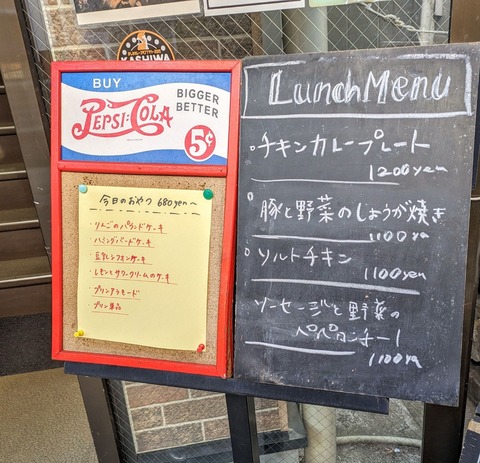 KASHIWA
BUY
PEPSI:COLA
BIGGER
BETTER
5¢
今日のおやつ 680yen〜
・りんごのパウンドケーキ
・ハミングバードケーキ
・豆乳シフォンケーキ
・レモンとサワークリームのケーキ
・プリンアラモード
・プリン単品
Lunch Menu
・チキンカレープレート
1200yen
・豚と野菜のしょうが焼き
1100yen
・ソルトチキン
1100yen
ソーセージと野菜の
ペペロンチーノ
1100yen